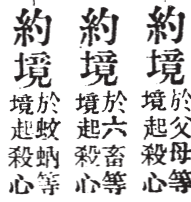 約境
於父母等
境起殺心
約境
於六畜等
境起殺心
約境
於蚊蚋等
境起殺心